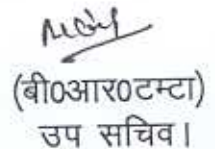 (बी0आर0टम्टा)
उप सचिव।